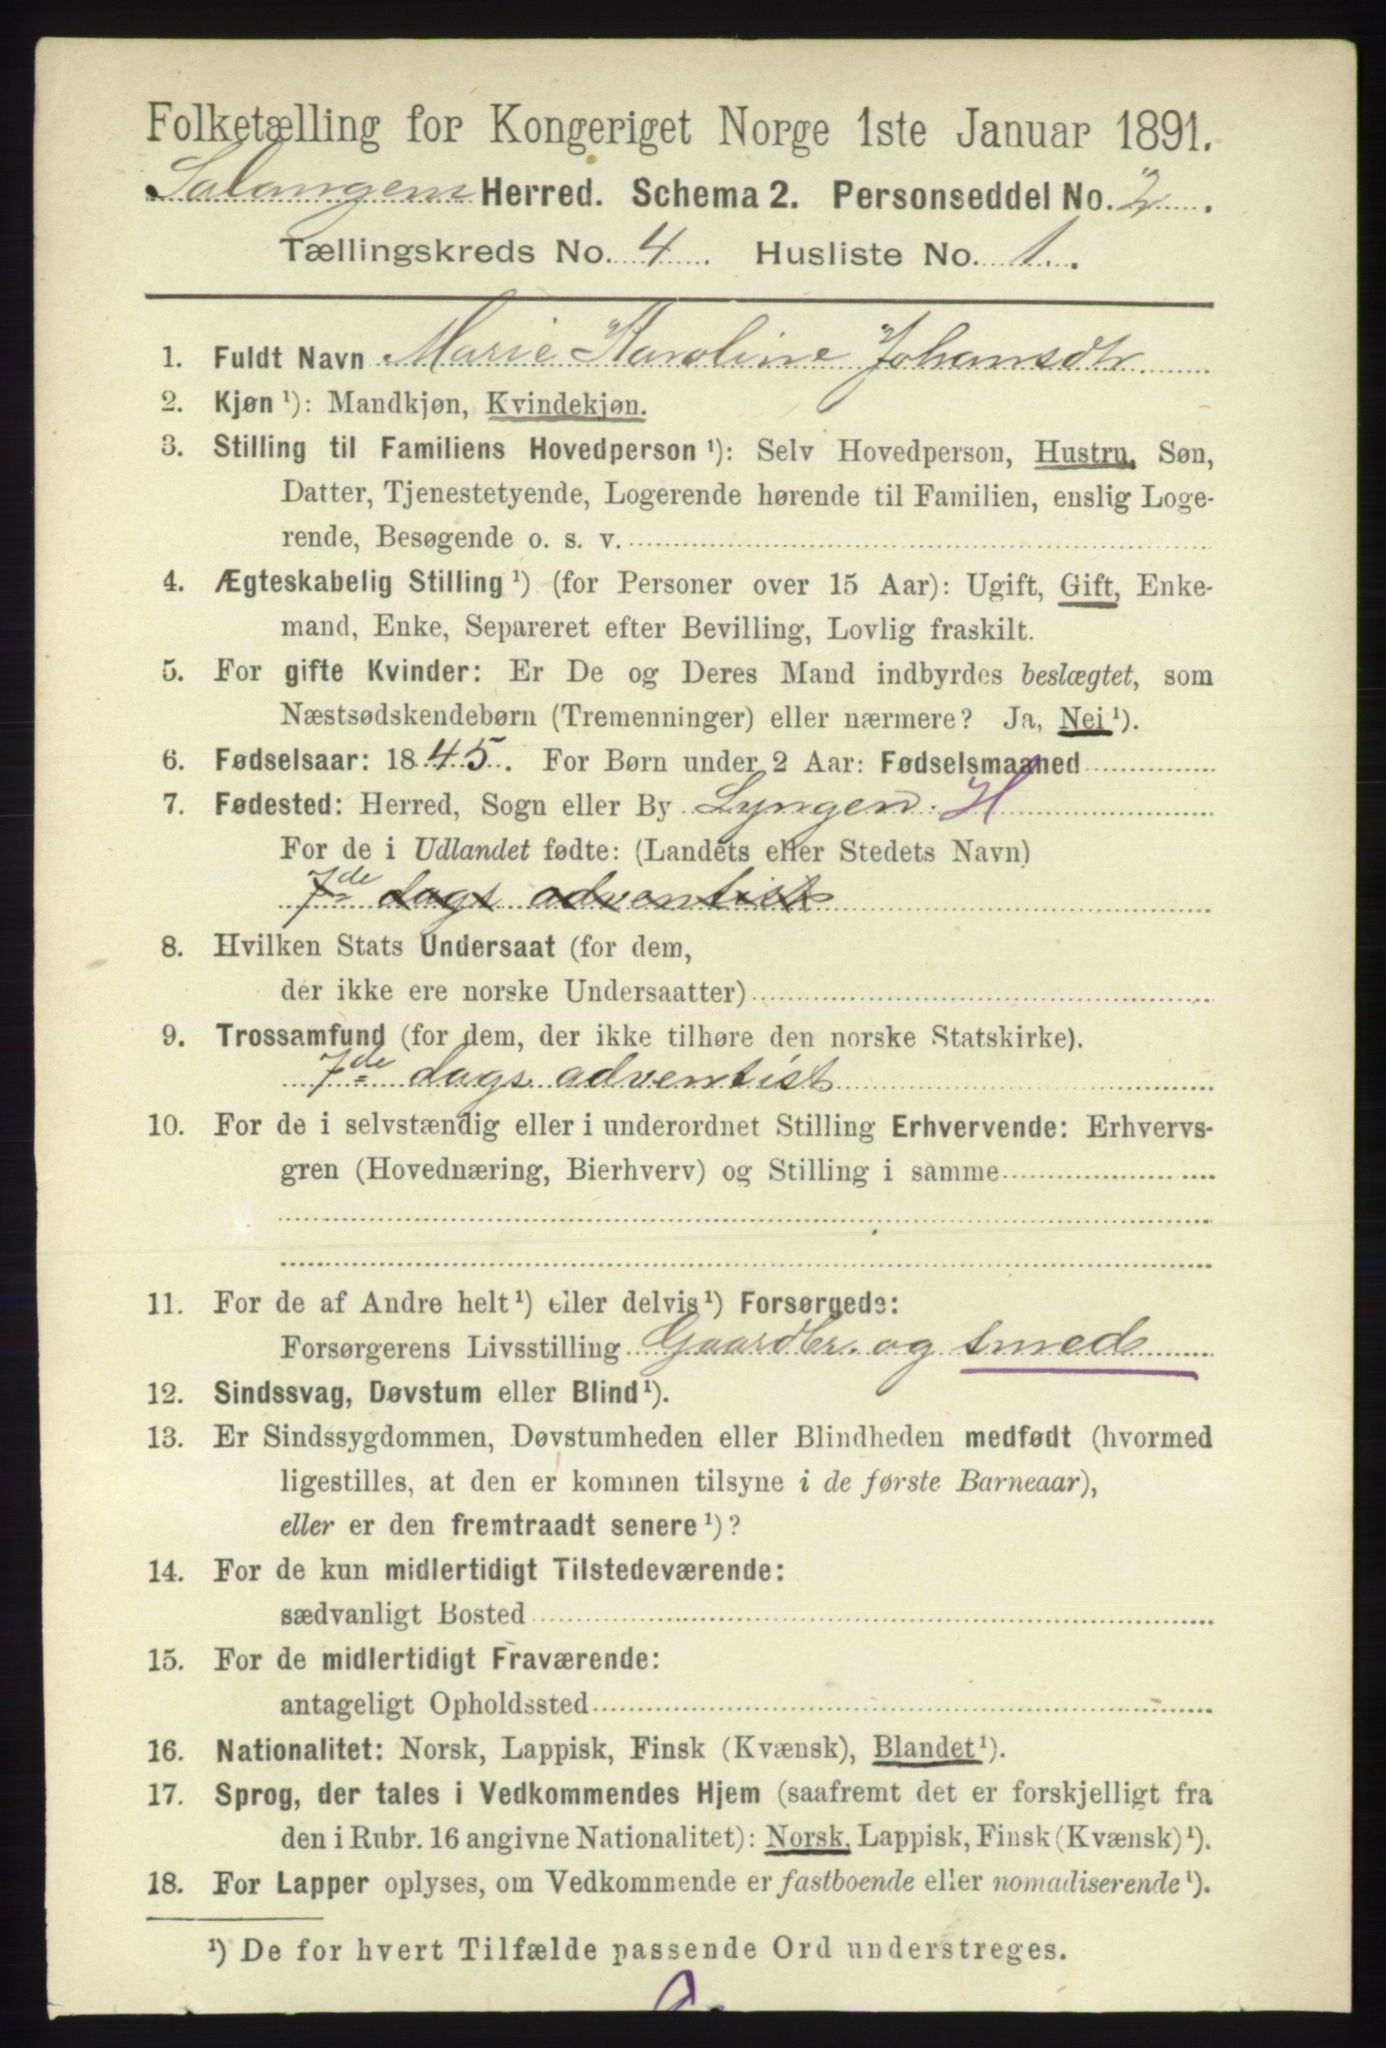 Folketælling for Kongeriget Norge 1ste Januar 1891.
Salangens Herred. Schema 2. Personseddel No. 2.
Tællingskreds No. 4. Husliste No. 1.
1. Fuldt Navn Marie Karoline Johansdtr.
2. Kjøn ¹): Mandkjøn, Kvindekjøn.
3. Stilling til Familiens Hovedperson ¹): Selv Hovedperson, Hustru, Søn,
Datter, Tjenestetyende, Logerende hørende til Familien, enslig Loge-
rende, Besøgende o. s. v.
4. Ægteskabelig Stilling ¹) (for Personer over 15 Aar): Ugift, Gift, Enke-
mand, Enke, Separeret efter Bevilling, Lovlig fraskilt.
5. For gifte Kvinder: Er De og Deres Mand indbyrdes beslægtet, som
Næstsødskendebørn (Tremenninger) eller nærmere? Ja, Nei ¹).
6. Fødselsaar: 1845. For Børn under 2 Aar: Fødselsmaaned
7. Fødested: Herred, Sogn eller By Lyngen. H
For de i Udlandet fødte: (Landets eller Stedets Navn)
7de dags adventist
8. Hvilken Stats Undersaat (for dem,
der ikke ere norske Undersaatter)
9. Trossamfund (for dem, der ikke tilhøre den norske Statskirke).
7de dags adventist
10. For de i selvstændig eller i underordnet Stilling Erhvervende: Erhvervs-
gren (Hovednæring, Bierhverv) og Stilling i samme
11. For de af Andre helt ¹) eller delvis ¹) Forsørgede:
Forsørgerens Livsstilling Gaardbr. og smed
12. Sindssvag, Døvstum eller Blind ¹).
13. Er Sindssygdommen, Døvstumheden eller Blindheden medfødt (hvormed
ligestilles, at den er kommen tilsyne i de første Barneaar),
eller er den fremtraadt senere ¹)?
14. For de kun midlertidigt Tilstedeværende:
sædvanligt Bosted
15. For de midlertidigt Fraværende:
antageligt Opholdssted
16. Nationalitet: Norsk, Lappisk, Finsk (Kvænsk), Blandet ¹).
17. Sprog, der tales i Vedkommendes Hjem (saafremt det er forskjelligt fra
den i Rubr. 16 angivne Nationalitet): Norsk, Lappisk, Finsk (Kvænsk) ¹).
18. For Lapper oplyses, om Vedkommende er fastboende eller nomadiserende ¹).
¹) De for hvert Tilfælde passende Ord understreges.